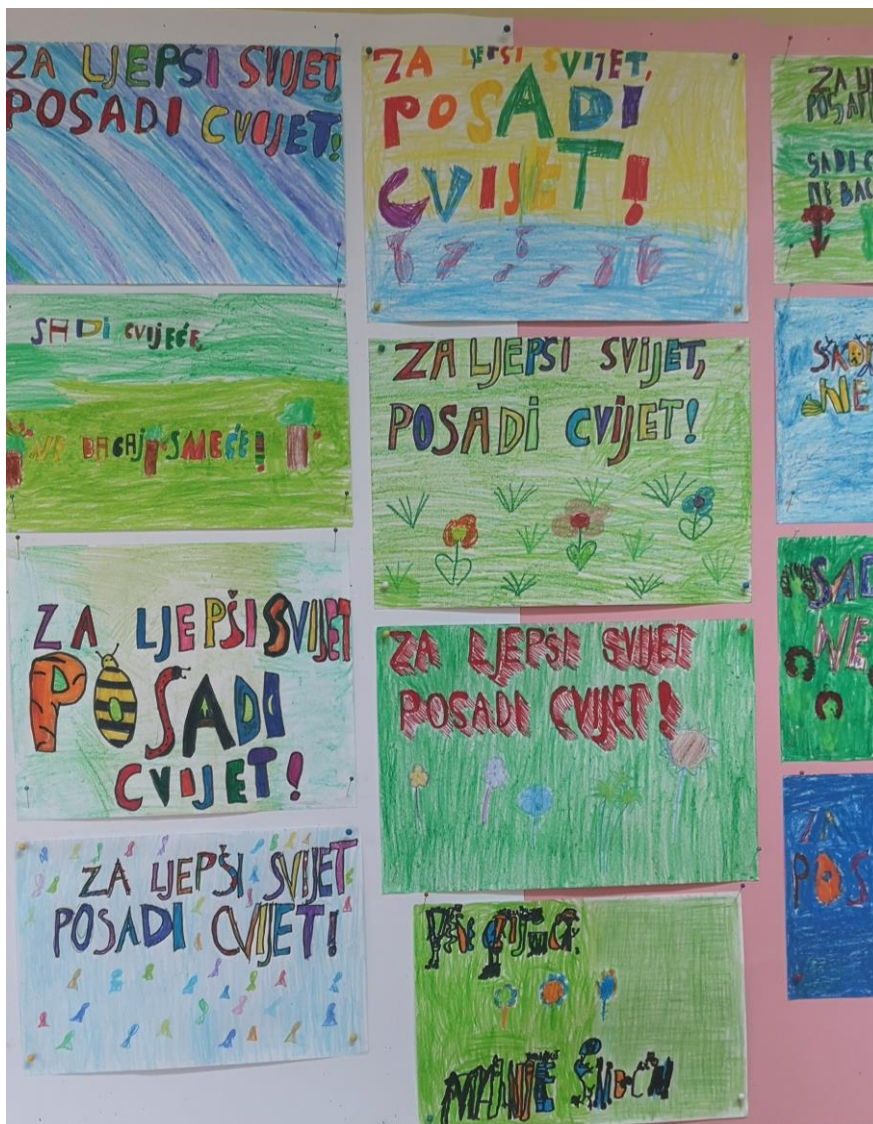 ZA LJEPŠI SVIJET,
POSADI CVIJET!
SADI CVIJEĆE,
NE BACAJ SMEĆE!
ZA LJEPŠI SVIJET
POSADI
CVIJET!
ZA LJEPŠI SVIJET
POSADI CVIJET!
ZA LJEPŠI SVIJET,
POSADI
CVIJET!
ZA LJEPŠI SVIJET,
POSADI CVIJET!
ZA LJEPŠI SVIJET
POSADI CVIJET!
MANJE
ZA
SADI
NE
NE
ZA
POS